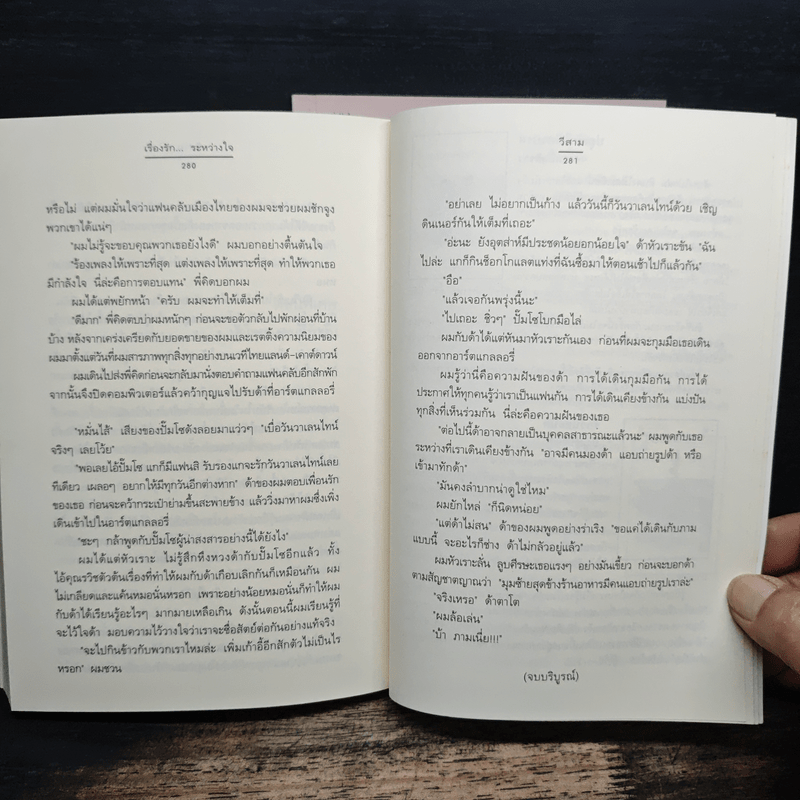 เรื่องรัก... ระหว่างใจ
280
หรือไม่ แต่ผมมั่นใจว่าแฟนคลับเมืองไทยของผมจะช่วยผมชักจูง
พวกเขาได้แน่ๆ
"ผมไม่รู้จะขอบคุณพวกเธอยังไงดี" ผมบอกอย่างตื้นตันใจ
"ร้องเพลงให้เพราะที่สุด แต่งเพลงให้เพราะที่สุด ทำให้พวกเธอ
มีกำลังใจ นี่ล่ะคือการตอบแทน" พี่คิดบอกผม
ผมได้แต่พยักหน้า "ครับ ผมจะทำให้เต็มที่"
"ดีมาก" พี่คิดตบบ่าผมหนักๆ ก่อนจะขอตัวกลับไปพักผ่อนที่บ้าน
บ้าง หลังจากเคร่งเครียดกับยอดขายของผมและเรตติ้งความนิยมของ
ผมมาตั้งแต่วันที่ผมสารภาพทุกสิ่งทุกอย่างบนเวทีไทยแลนด์-เคาต์ดาวน์
ผมเดินไปส่งพี่คิดก่อนจะกลับมานั่งตอบคำถามแฟนคลับอีกสักพัก
จากนั้นจึงปิดคอมพิวเตอร์แล้วคว้ากุญแจไปรับด้าที่อาร์ตแกลลอรี่
"หมั่นไส้" เสียงของปั๊มโซดังลอยมาแว่วๆ "เบื่อวันวาเลนไทน์
จริงๆ เลยโว้ย"
"พอเลยไอ้ปั๊มโซ แกก็มีแฟนสิ รับรองแกจะรักวันวาเลนไทน์เลย
ทีเดียว เผลอๆ อยากให้มีทุกวันอีกต่างหาก" ด้าของผมตอบเพื่อนรัก
ของเธอ ก่อนจะคว้ากระเป๋าย่ามขึ้นสะพายข้าง แล้ววิ่งมาหาผมซึ่งเพิ่ง
เดินเข้าไปในอาร์ตแกลลอรี่
"ชะๆ กล้าพูดกับปั๊มโซผู้น่าสงสารอย่างนี้ได้ยังไง"
ผมได้แต่หัวเราะ ไม่รู้สึกหึงหวงด้ากับปั๊มโซอีกแล้ว ทั้ง
ไอ้คุณรวิชตัวต้นเรื่องที่ทำให้ผมกับด้าเกือบเลิกกันก็เหมือนกัน ผม
ไม่เกลียดและแค้นหมอนั่นหรอก เพราะอย่างน้อยหมอนั่นก็ทำให้ผม
กับด้าได้เรียนรู้อะไรๆ มากมายเหลือเกิน ดังนั้นตอนนี้ผมเรียนรู้ที่
จะไว้ใจด้า มอบความไว้วางใจว่าเราจะซื่อสัตย์ต่อกันอย่างแท้จริง
"จะไปกินข้าวกับพวกเราไหมล่ะ เพิ่มเก้าอี้อีกสักตัวไม่เป็นไร
หรอก" ผมชวน
วีสาม
281
"อย่าเลย ไม่อยากเป็นก้าง แล้ววันนี้ก็วันวาเลนไทน์ด้วย เชิญ
ดินเนอร์กันให้เต็มที่เถอะ"
"อ่ะนะ ยังอุตส่าห์มีประชดน้อยอกน้อยใจ" ด้าหัวเราะขัน "ฉัน
ไปล่ะ แกก็กินช็อกโกแลตแท่งที่ฉันซื้อมาให้ตอนเช้าไปก็แล้วกัน"
"อือ"
"แล้วเจอกันพรุ่งนี้นะ"
"ไปเถอะ ชิ่วๆ" ปั๊มโซโบกมือไล่
ผมกับด้าได้แต่หันมาหัวเราะกันเอง ก่อนที่ผมจะกุมมือเธอเดิน
ออกจากอาร์ตแกลลอรี่
ผมรู้ว่านี่คือความฝันของด้า การได้เดินกุมมือกัน การได้
ประกาศให้ทุกคนรู้ว่าเราเป็นแฟนกัน การได้เดินเคียงข้างกัน แบ่งปัน
ทุกสิ่งที่เห็นร่วมกัน นี่ล่ะคือความฝันของเธอ
"ต่อไปนี้ด้าอาจกลายเป็นบุคคลสาธารณะแล้วนะ" ผมพูดกับเธอ
ระหว่างที่เราเดินเคียงข้างกัน "อาจมีคนมองด้า แอบถ่ายรูปด้า หรือ
เข้ามาทักด้า"
"มันคงลำบากน่าดูใช่ไหม"
ผมยักไหล่ "ก็นิดหน่อย"
"แต่ด้าไม่สน" ด้าของผมพูดอย่างร่าเริง "ขอแค่ได้เดินกับภาม
แบบนี้ จะอะไรก็ช่าง ด้าไม่กลัวอยู่แล้ว"
ผมหัวเราะลั่น ลูบศีรษะเธอแรงๆ อย่างมันเขี้ยว ก่อนจะบอกด้า
ตามสัญชาตญาณว่า "มุมซ้ายสุดข้างร้านอาหารมีคนแอบถ่ายรูปเราล่ะ"
"จริงเหรอ" ด้าตาโต
"ผมล้อเล่น"
"บ้า ภามเนี่ย!!!"
(จบบริบูรณ์)